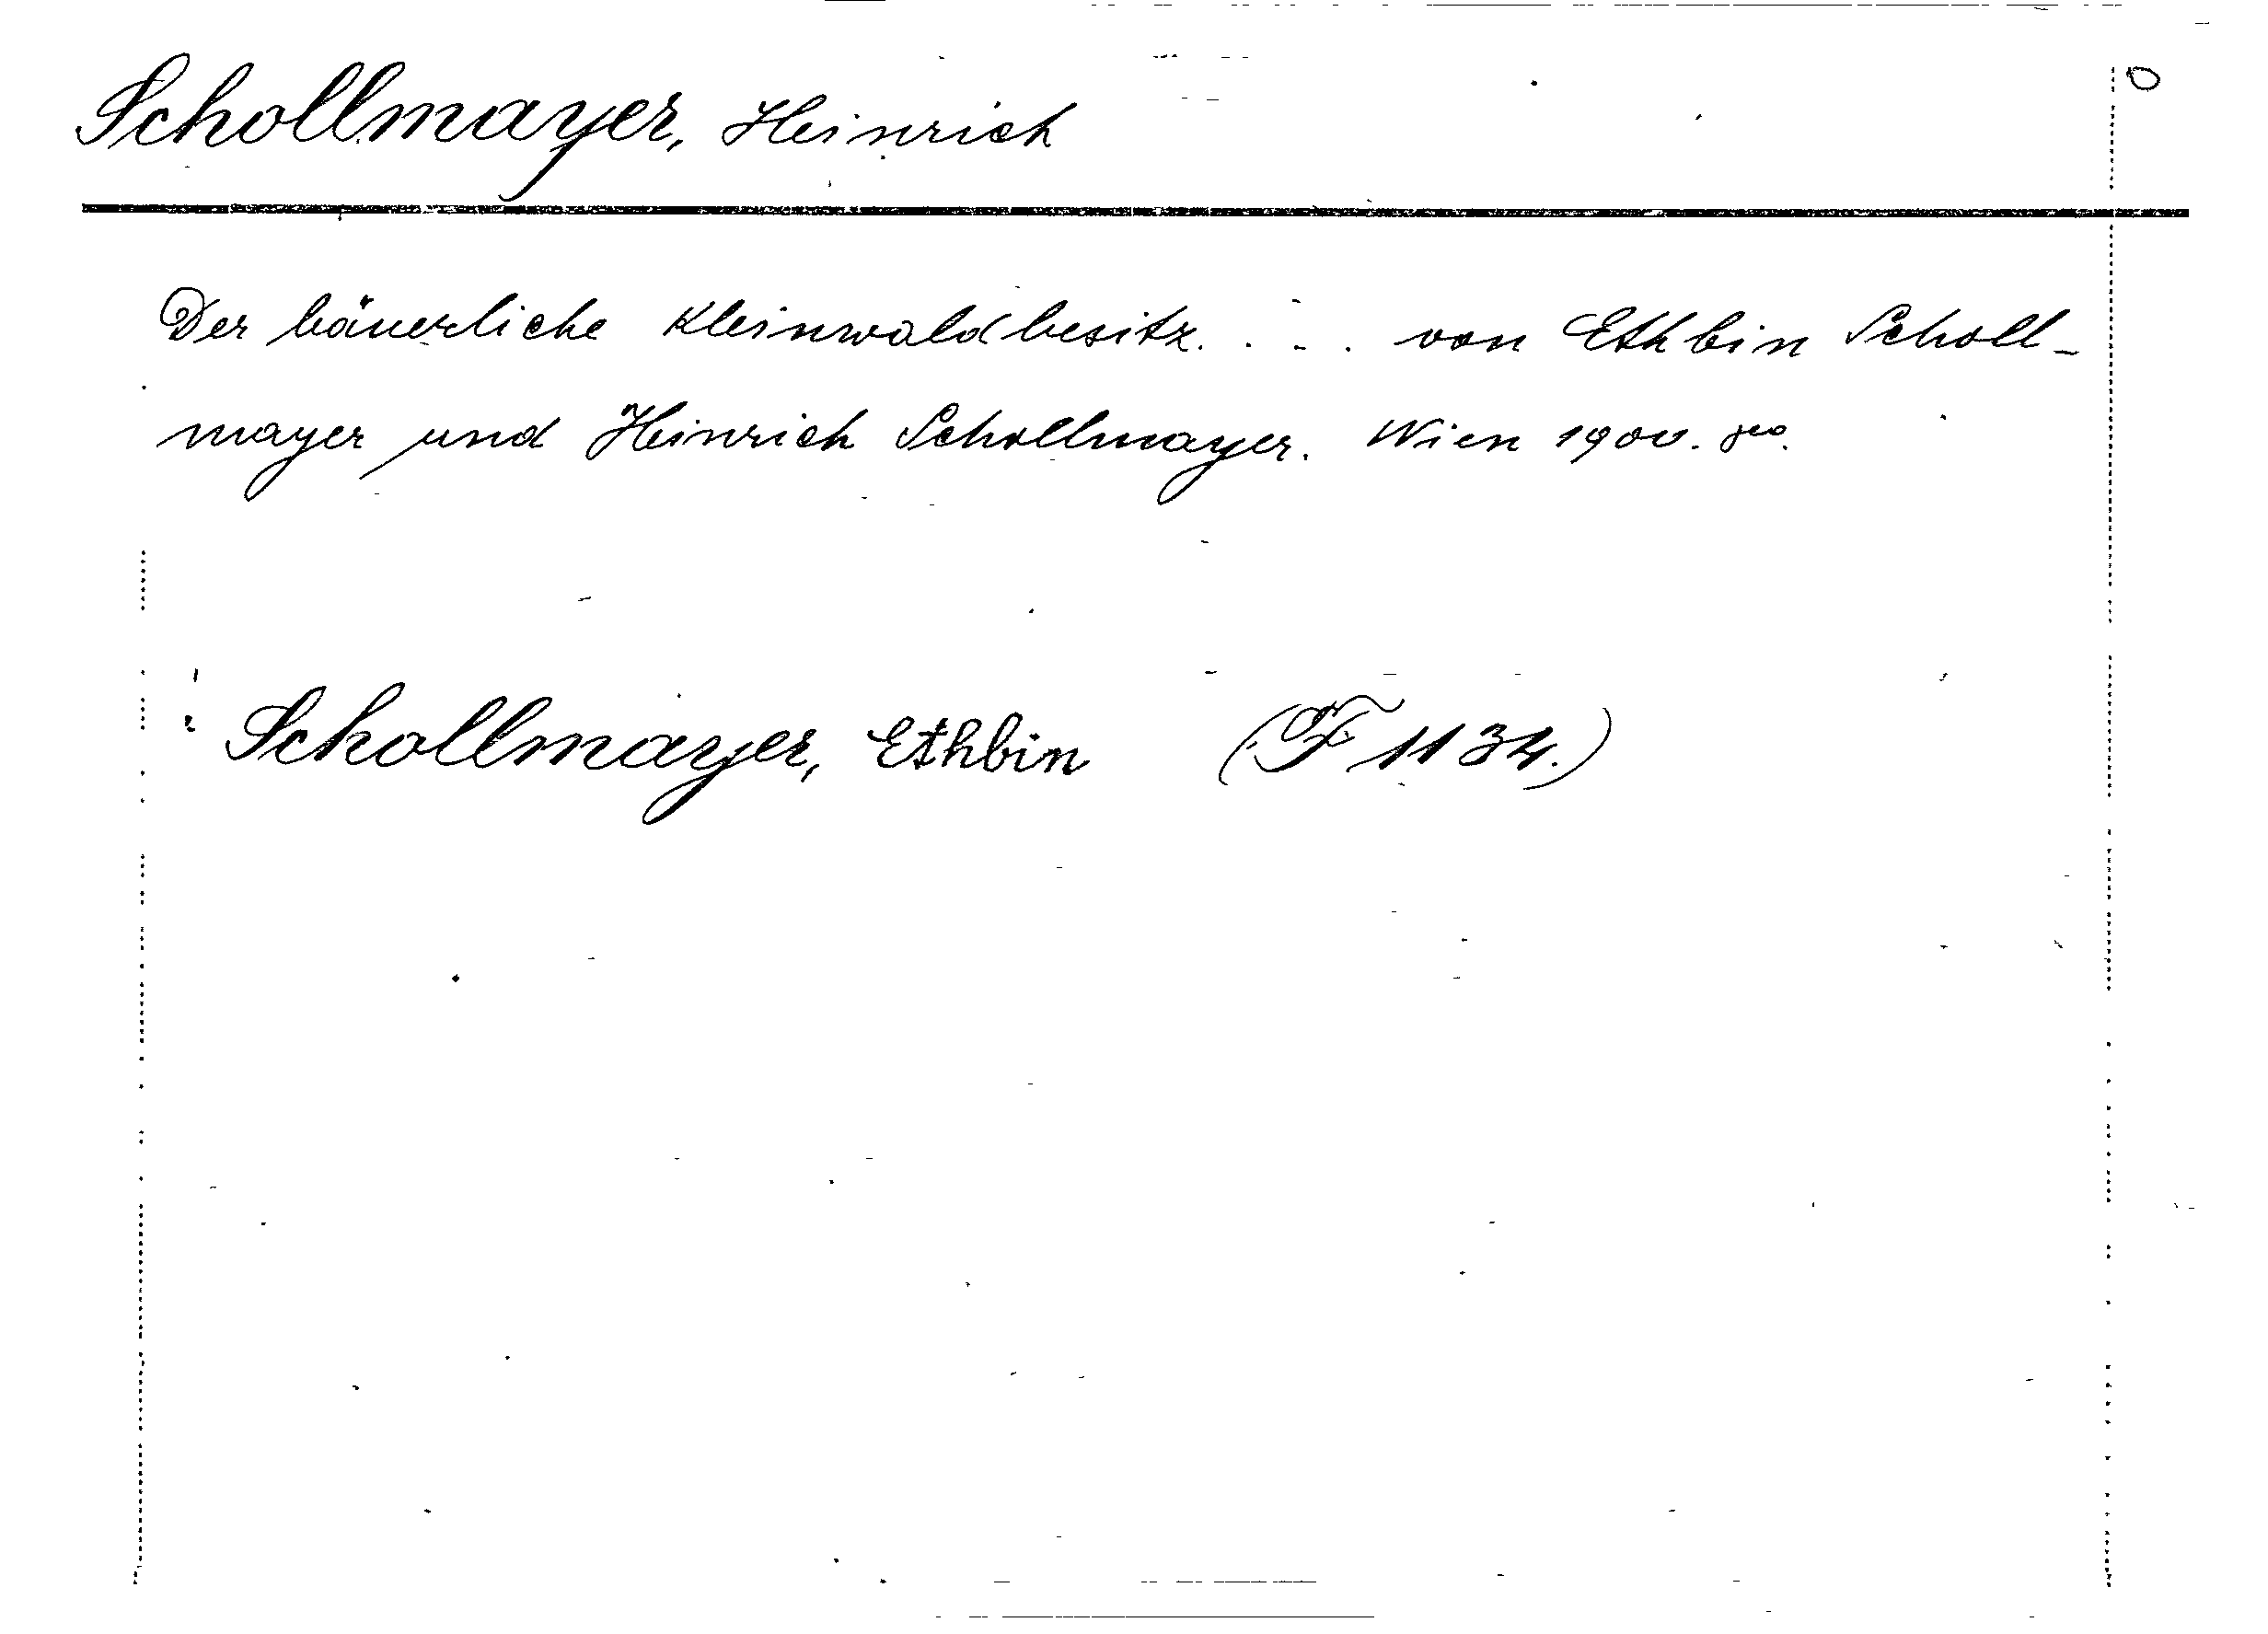 Schollmayer, Heinrich
Der bäuerliche Kleinwaldbesitz. . . . von Ethbin Scholl-
mayer und Heinrich Schollmayer. Wien 1900. 8o.
: Schollmayer, Ethbin (F 1134.)